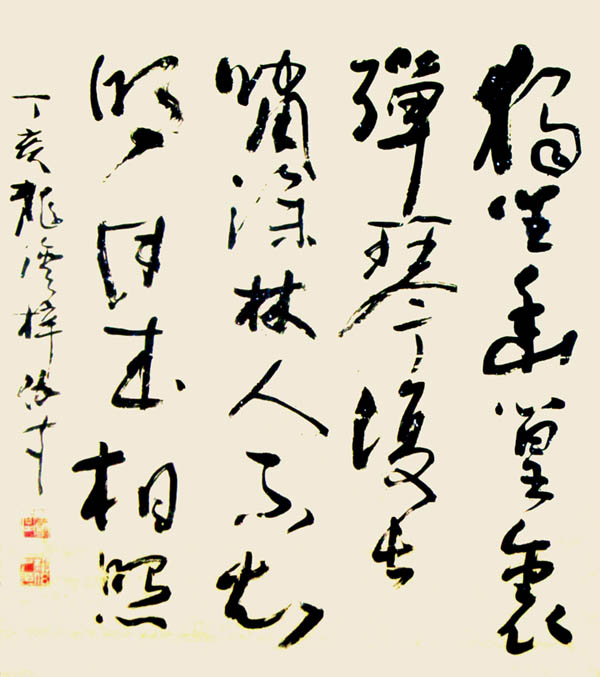 獨坐幽篁裏
彈琴復長
嘯深林人不知
明月來相照
丁亥龍